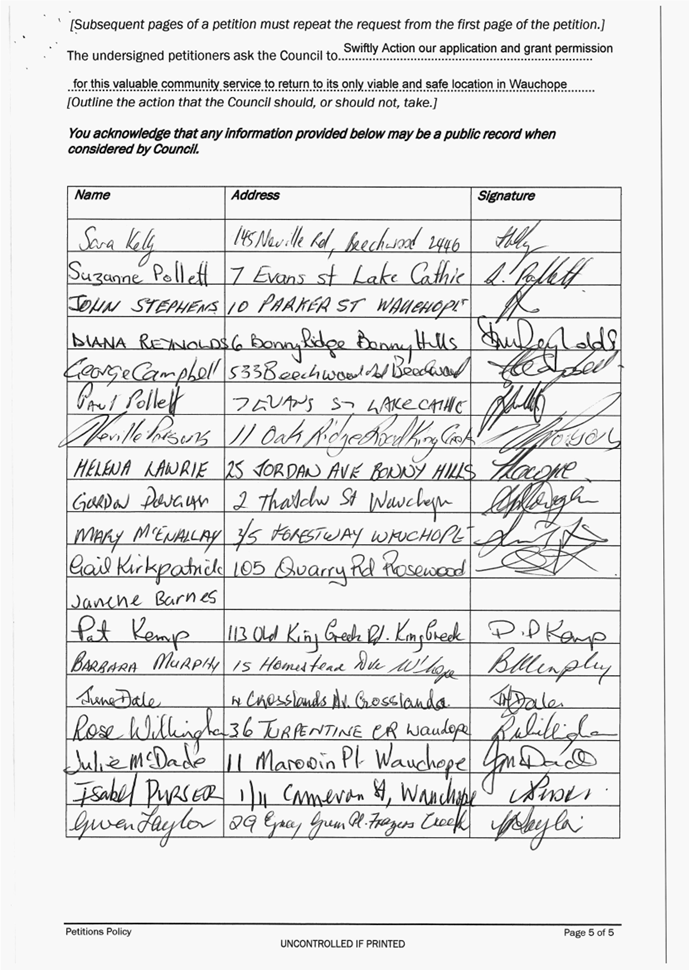 [Subsequent pages of a petition must repeat the request from the first page of the petition.]
The undersigned petitioners ask the Council to Swiftly Action our application and grant permission
for this valuable community service to return to its only viable and safe location in Wauchope
[Outline the action that the Council should, or should not, take.]
You acknowledge that any information provided below may be a public record when
considered by Council.
Name Address Signature
Sara Kelly 145 Neville Rd, Beechwood 2446
Suzanne Pollett 7 Evans st Lake Cathie S. Pollett
JOHN STEPHENS 10 PARKER ST WAUCHOPE
DIANA REYNOLDS 6 Bonny Ridge Bonny Hills
George Campbell 533 Beechwood Rd Beechwood
Paul Pollett 7 EVANS ST LAKE CATHIE
Neville Parsons 11 Oak Ridge Road King Creek
HELENA LAWRIE 25 JORDAN AVE BONNY HILLS
GORDON 2 St Wauchope
MARY McENALLAY 3/5 FORESTWAY WAUCHOPE
Gail Kirkpatrick 105 Quarry Rd Rosewood
Janene Barnes
Pat Kemp 113 Old King Creek Rd. King Creek P. P Kemp
BARBARA MURPHY 15 Homestead Dve W'hope B Murphy
June Dale Crosslands Av. Crosslands Dale
Rose Willingha 36 TURPENTINE CR Wauchope
Julie McDade 11 Marooin Pl Wauchope JMcDade
Isabel PURSER 1/11 Cameron St, Wauchope
Gwen Taylor 29 Grey Gum Pl. Frazers Creek
Petitions Policy Page 5 of 5
UNCONTROLLED IF PRINTED